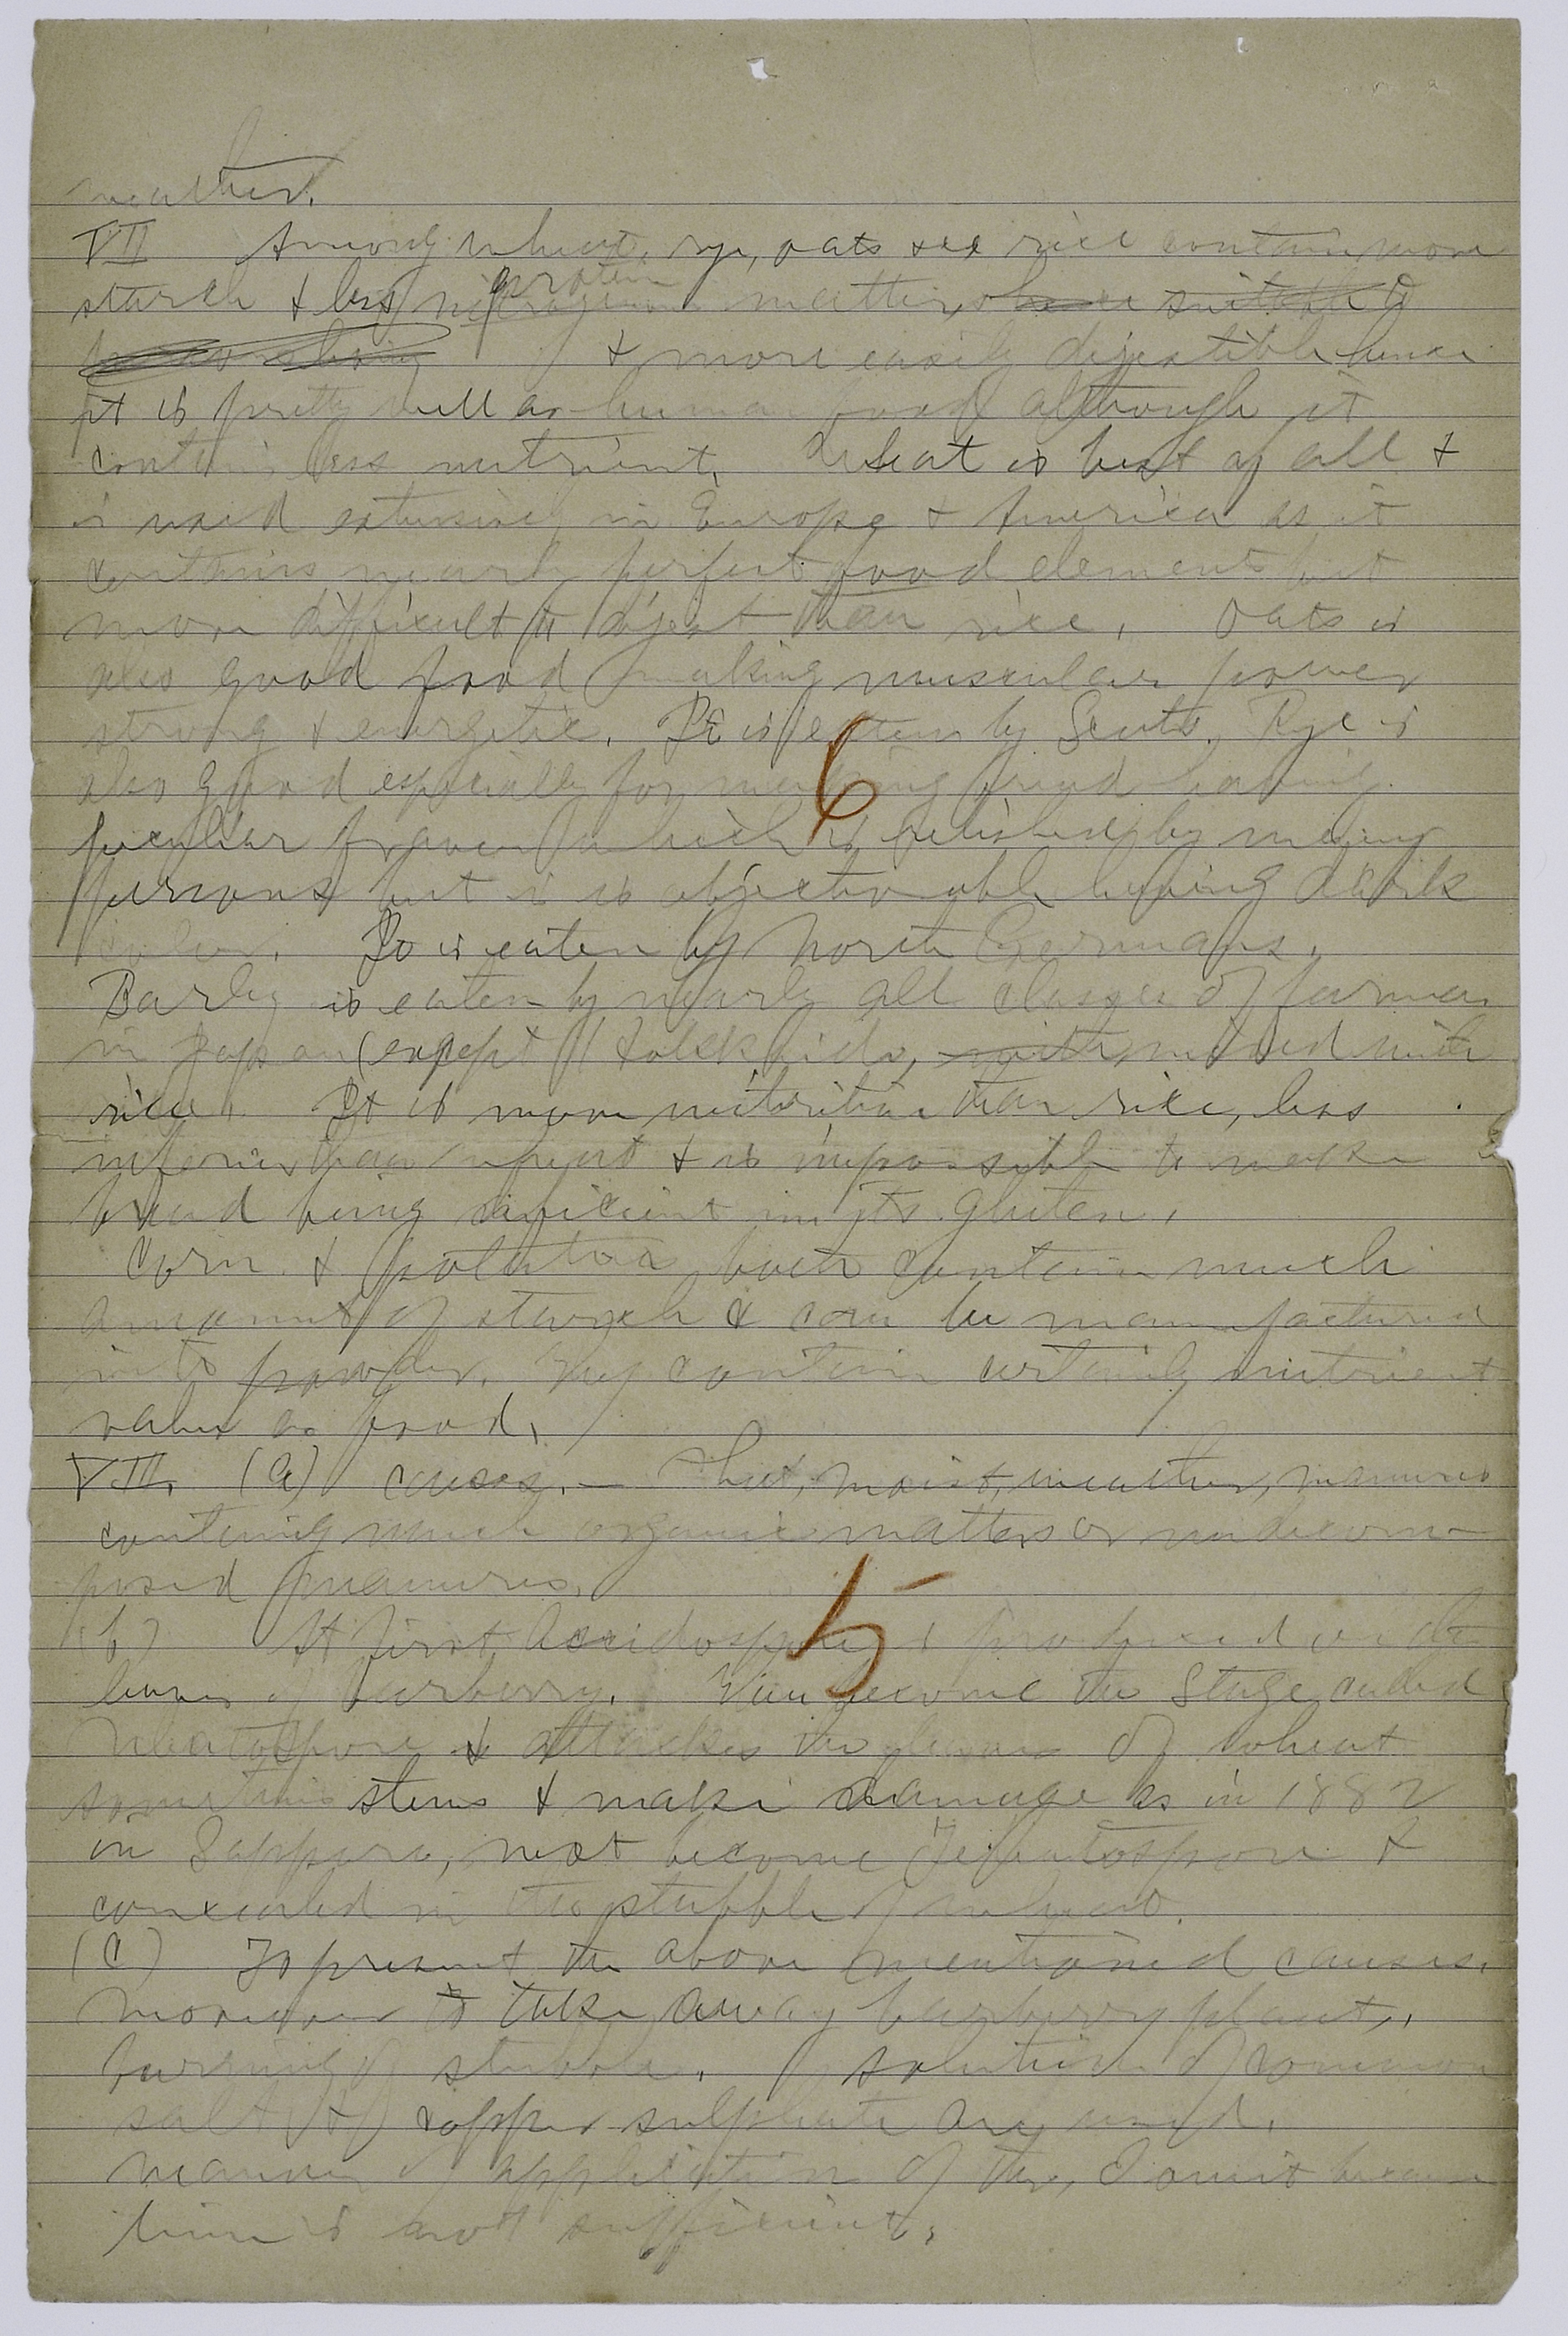 weather.
VII Among wheat, rye, oats &c rice contain more
starch & less nitrogenous protein matter, hence suitable to
& more easily digestible hence
it is pretty well as human food although it
contains less nutrient. Wheat is best of all &
is used extensively in Europe & America as it
contains nearly perfect food elements but
more difficult to digest than rice. Oats is
also good food making muscular power
strong & energetic. It is eaten by Scots. Rye is
also good especially for making bread having
peculiar flavour which is relished by many
persons but it is objectionable having dark
color. It is eaten by North Germans.
Barley is eaten by nearly all classes of farmers
in Japan (except Hokkaido, with mixed with
rice. It is more nutritive than rice, less
inferior than wheat & is impossible to make
bread being deficient in its gluten.
Corn & potatoe both contain much
amount of starch & can be manufactured
into powder. They contain certainly nutrient
value as food.
VIII. (a) causes. — Hot, moist, weather, manures
containing much organic matters or undecom-
posed manures.
(b) At first Accidospore is produced on the
leaves of barberry. Then become the Stage called
& attacks the leaves of wheat
sometimes stems & make damage as in 1882
in Sapporo, next become Teleutospore &
concealed in the stubble of wheat.
(C) To prevent the above mentioned causes.
Moreover to take away barberry plant,
burning of stubble. solution of common
salt & copper sulphate are used.
manner of application of the, I omit because
time is not sufficient.
6
5